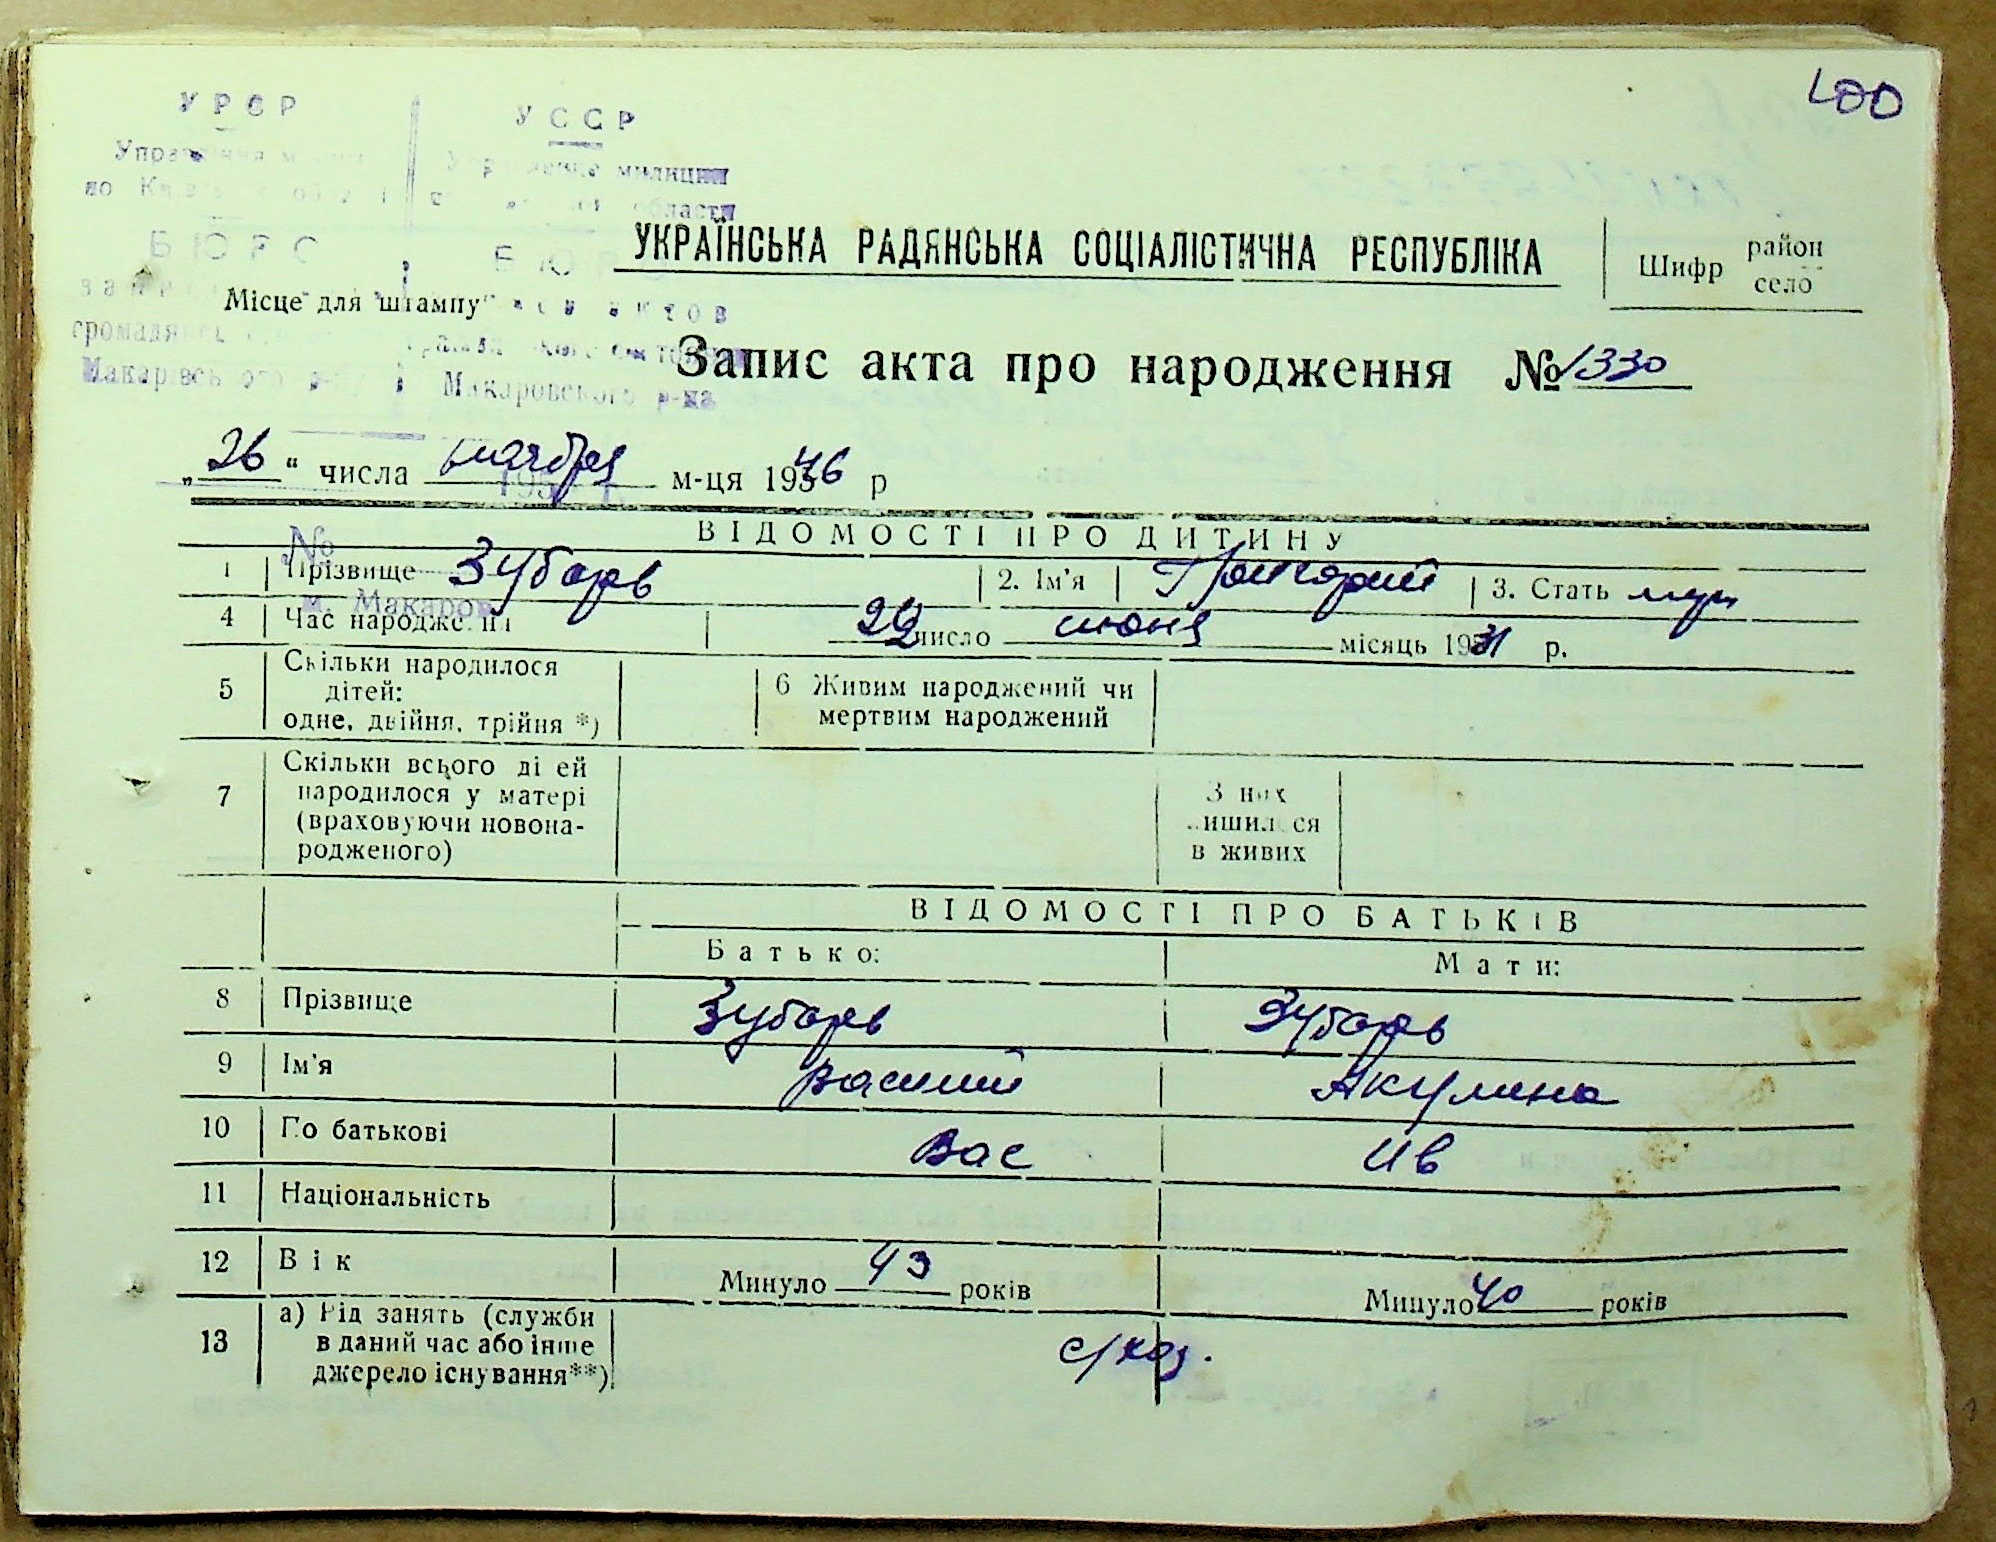 400
УРСР
УССР
милиции
области
БЮРО
БЮРО
УКРАЇНСЬКА РАДЯНСЬКА СОЦІАЛІСТИЧНА РЕСПУБЛІКА
Шифр район село
Місце для штампу
актов
Макарівського р-ну
Макаровского р-на
Запис акта про народження № 1330
„26“ числа ноября м-ця 1946 р
195 г.
ВІДОМОСТІ ПРО ДИТИНУ
№
1 Прізвище Зубарь 2. Ім'я Григорий 3. Стать муж
м. Макаров
4 Час народження 22 число июня місяць 1931 р.
5 Скільки народилося
дітей:
одне, двійня, трійня *)
6 Живим народжений чи
мертвим народжений
7 Скільки всього дітей
народилося у матері
(враховуючи новона-
родженого)
З них
лишилося
в живих
ВІДОМОСТІ ПРО БАТЬКІВ
Батько: Мати:
8 Прізвище Зубарь Зубарь
9 Ім'я Василий Акулина
10 По батькові Вас Ив
11 Національність
12 Вік Минуло 43 років Минуло 40 років
13 а) Рід занять (служби
в даний час або інше
джерело існування**)
с/хоз.